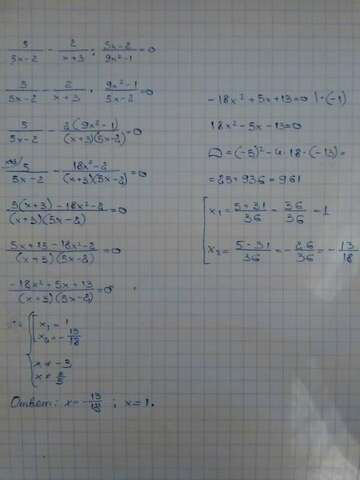 5/(5x-2) - 2/(x+3) : (5x-2)/(9x²-1) = 0
5/(5x-2) - 2/(x+3) · (9x²-1)/(5x-2) = 0
5/(5x-2) - 2(9x²-1)/((x+3)(5x-2)) = 0
5/(5x-2) - (18x²-2)/((x+3)(5x-2)) = 0
(5(x+3)-18x²-2)/((x+3)(5x-2)) = 0
(5x+15-18x²-2)/((x+3)(5x-2)) = 0
(-18x²+5x+13)/((x+3)(5x-2)) = 0
x₁ = 1
x₂ = -13/18
x ≠ -3
x ≠ 2/5
Ответ: x = -13/18 ; x = 1.
-18x²+5x+13=0 | ·(-1)
18x²-5x-13=0
D = (-5)² - 4 · 18 · (-13) =
= 25+936 = 961
x₁ = (5+31)/36 = 36/36 = 1
x₂ = (5-31)/36 = -26/36 = -13/18